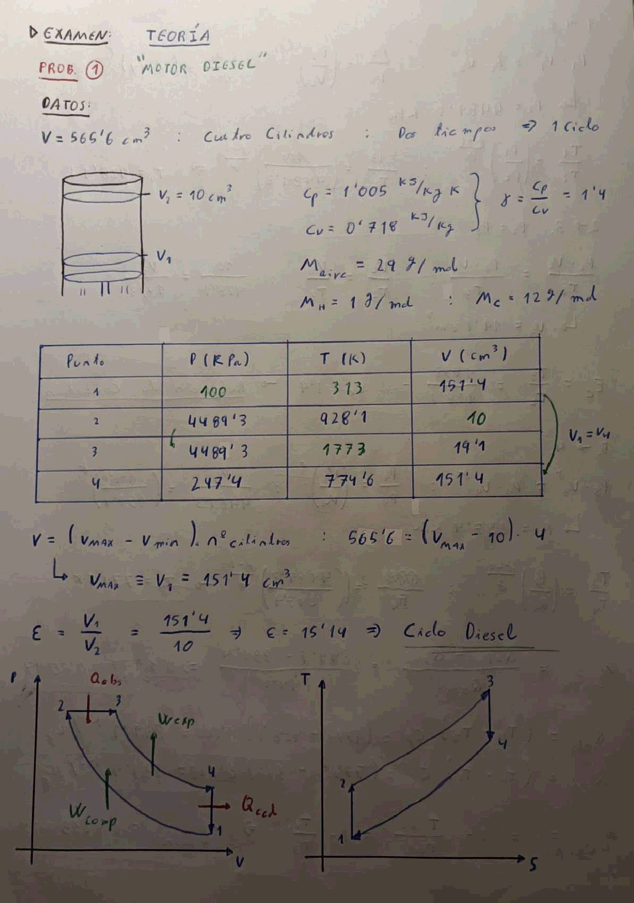 ▷ EXAMEN: TEORÍA
PROB. ① "MOTOR DIESEL"
DATOS:
V = 565'6 cm³ : Cuatro Cilindros : Dos tiempos ⇒ 1 Ciclo
V₂ = 10 cm³
V₁
Cp = 1'005 KJ/Kg K
Cv = 0'718 KJ/Kg
γ = Cp/Cv = 1'4
M_aire = 29 g/mol
M_H = 1 g/mol : M_C = 12 g/mol
Punto P (KPa) T (K) V (cm³)
1 100 313 151'4
2 4489'3 928'1 10
3 4489'3 1773 19'1
4 247'4 774'6 151'4
V₁ = V₄
V = (V_MAX - V_min) · nº cilindros : 565'6 = (V_MAX - 10) · 4
↳ V_MAX ≡ V₁ = 151'4 cm³
ε = V₁/V₂ = 151'4/10 ⇒ ε = 15'14 ⇒ Ciclo Diesel
P
Qabs
2 3
Wexp
4
Wcomp
Qced
1
V
T
3
4
2
1
S